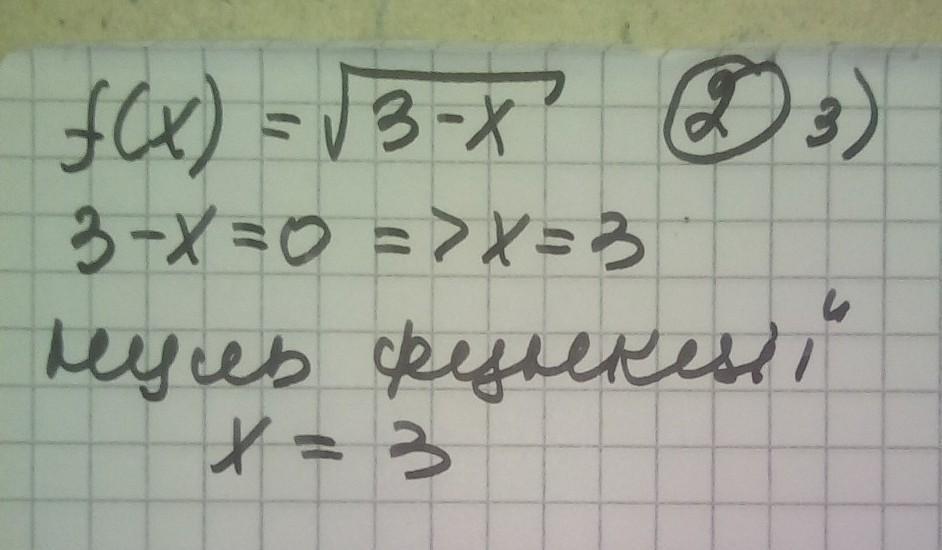 f(x) = √3-x ② 3)
3-x=0 => x=3
нуль функції
x = 3